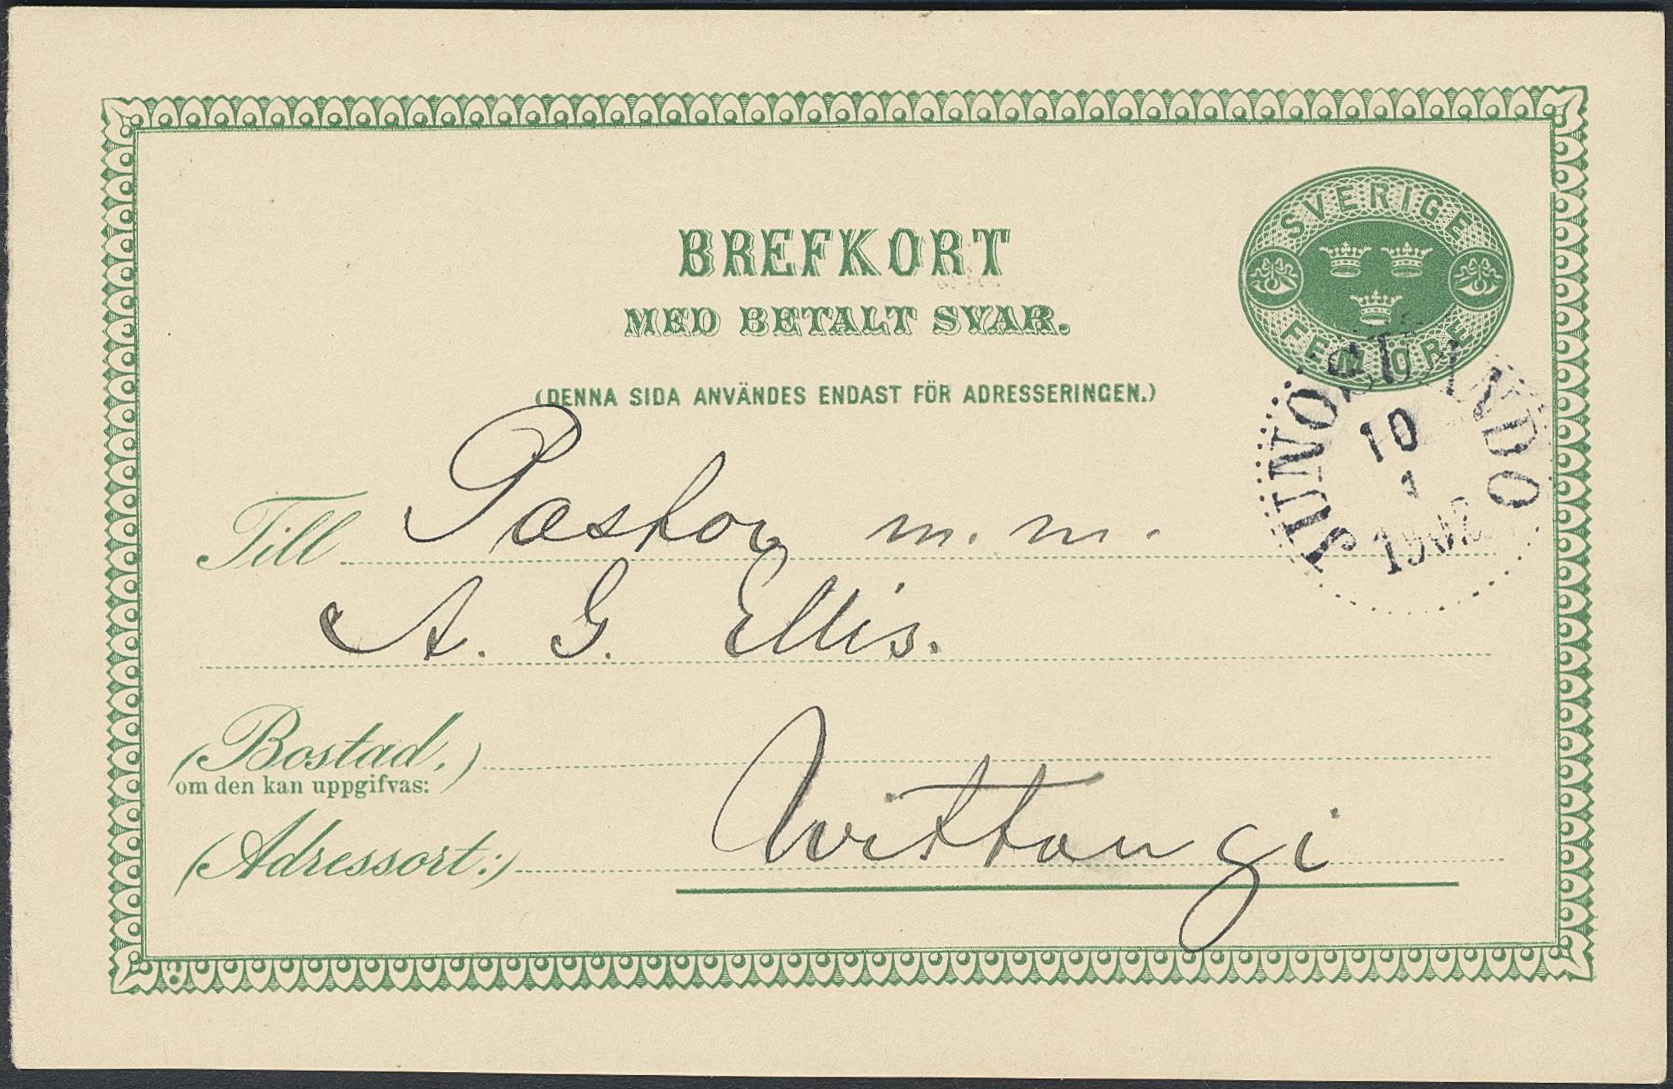 BREFKORT
MED BETALT SVAR.
(DENNA SIDA ANVÄNDES ENDAST FÖR ADRESSERINGEN.)
SVERIGE
FEM ÖRE
10
1
1902
Till Pastor m. m.
A. G. Ellis.
(Bostad,)
om den kan uppgifvas:
(Adressort:) Wittangi